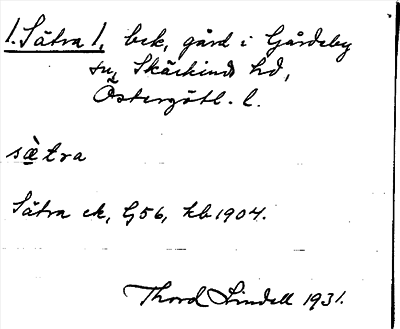 1. Sätra 1, bck, gård i Gårdeby
sn, Skärkinds hd,
Östergötl. l.
sætra
Sätra ek, G56, kb 1904.
Thord Lindell 1931.